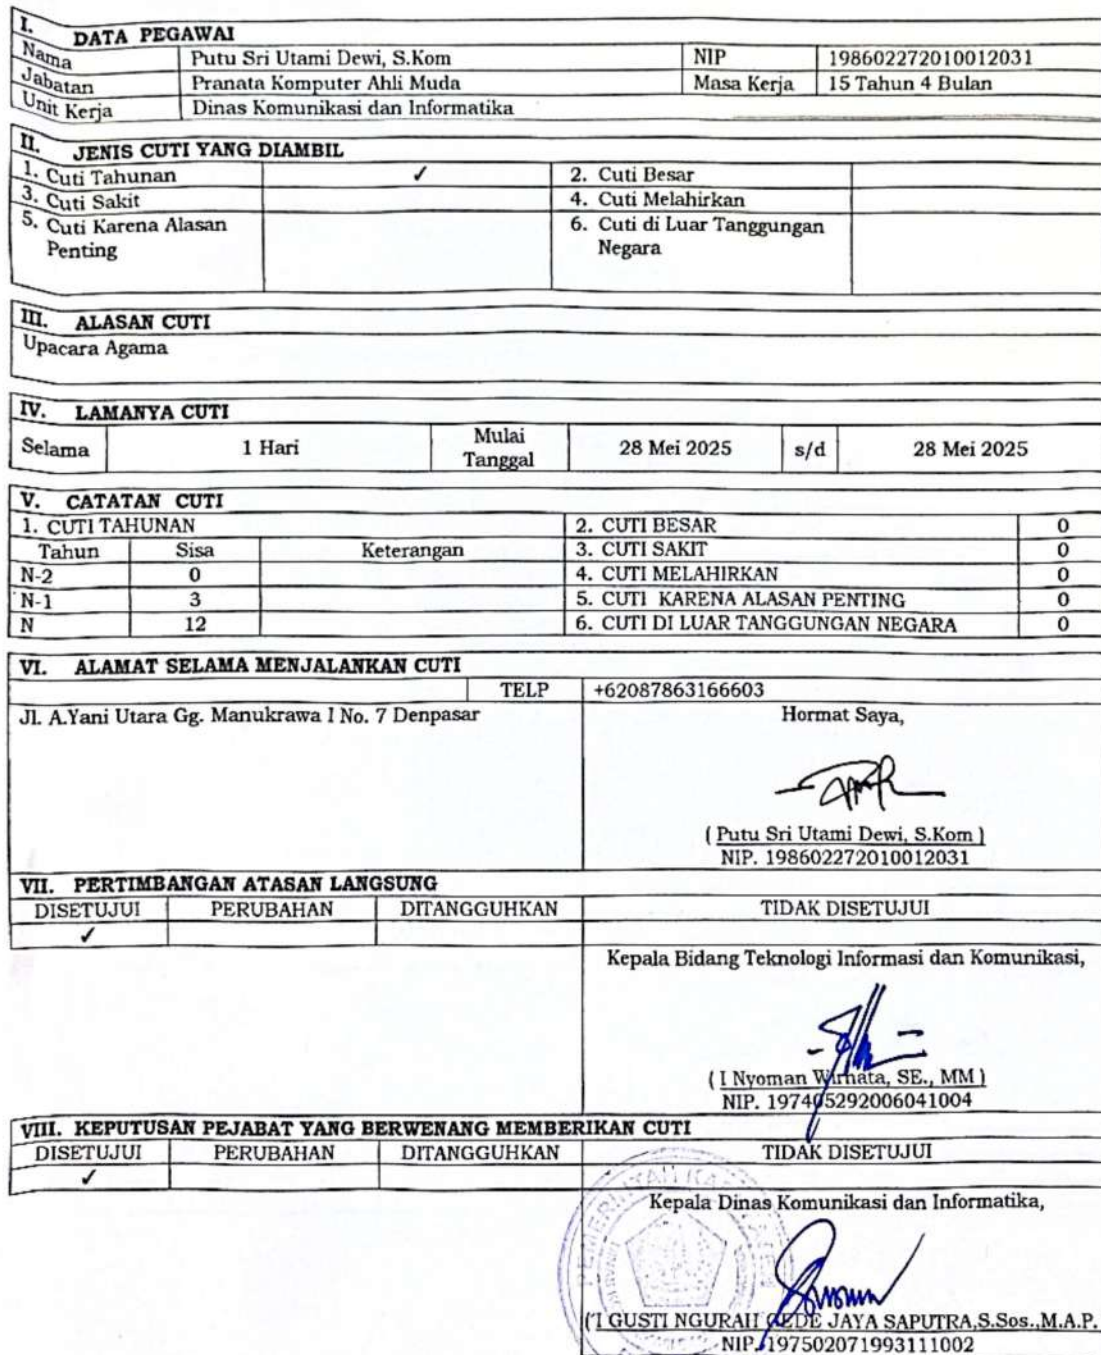 I. DATA PEGAWAI
Nama Putu Sri Utami Dewi, S.Kom NIP 198602272010012031
Jabatan Pranata Komputer Ahli Muda Masa Kerja 15 Tahun 4 Bulan
Unit Kerja Dinas Komunikasi dan Informatika
II. JENIS CUTI YANG DIAMBIL
1. Cuti Tahunan ✓ 2. Cuti Besar
3. Cuti Sakit 4. Cuti Melahirkan
5. Cuti Karena Alasan 6. Cuti di Luar Tanggungan
Penting Negara
III. ALASAN CUTI
Upacara Agama
IV. LAMANYA CUTI
Selama 1 Hari Mulai Tanggal 28 Mei 2025 s/d 28 Mei 2025
V. CATATAN CUTI
1. CUTI TAHUNAN 2. CUTI BESAR 0
Tahun Sisa Keterangan 3. CUTI SAKIT 0
N-2 0 4. CUTI MELAHIRKAN 0
N-1 3 5. CUTI KARENA ALASAN PENTING 0
N 12 6. CUTI DI LUAR TANGGUNGAN NEGARA 0
VI. ALAMAT SELAMA MENJALANKAN CUTI
TELP +62087863166603
Jl. A.Yani Utara Gg. Manukrawa I No. 7 Denpasar Hormat Saya,
( Putu Sri Utami Dewi, S.Kom )
NIP. 198602272010012031
VII. PERTIMBANGAN ATASAN LANGSUNG
DISETUJUI PERUBAHAN DITANGGUHKAN TIDAK DISETUJUI
✓
Kepala Bidang Teknologi Informasi dan Komunikasi,
( I Nyoman Wirnata, SE., MM )
NIP. 197405292006041004
VIII. KEPUTUSAN PEJABAT YANG BERWENANG MEMBERIKAN CUTI
DISETUJUI PERUBAHAN DITANGGUHKAN TIDAK DISETUJUI
✓
Kepala Dinas Komunikasi dan Informatika,
( I GUSTI NGURAH GEDE JAYA SAPUTRA,S.Sos.,M.A.P.
NIP. 197502071993111002